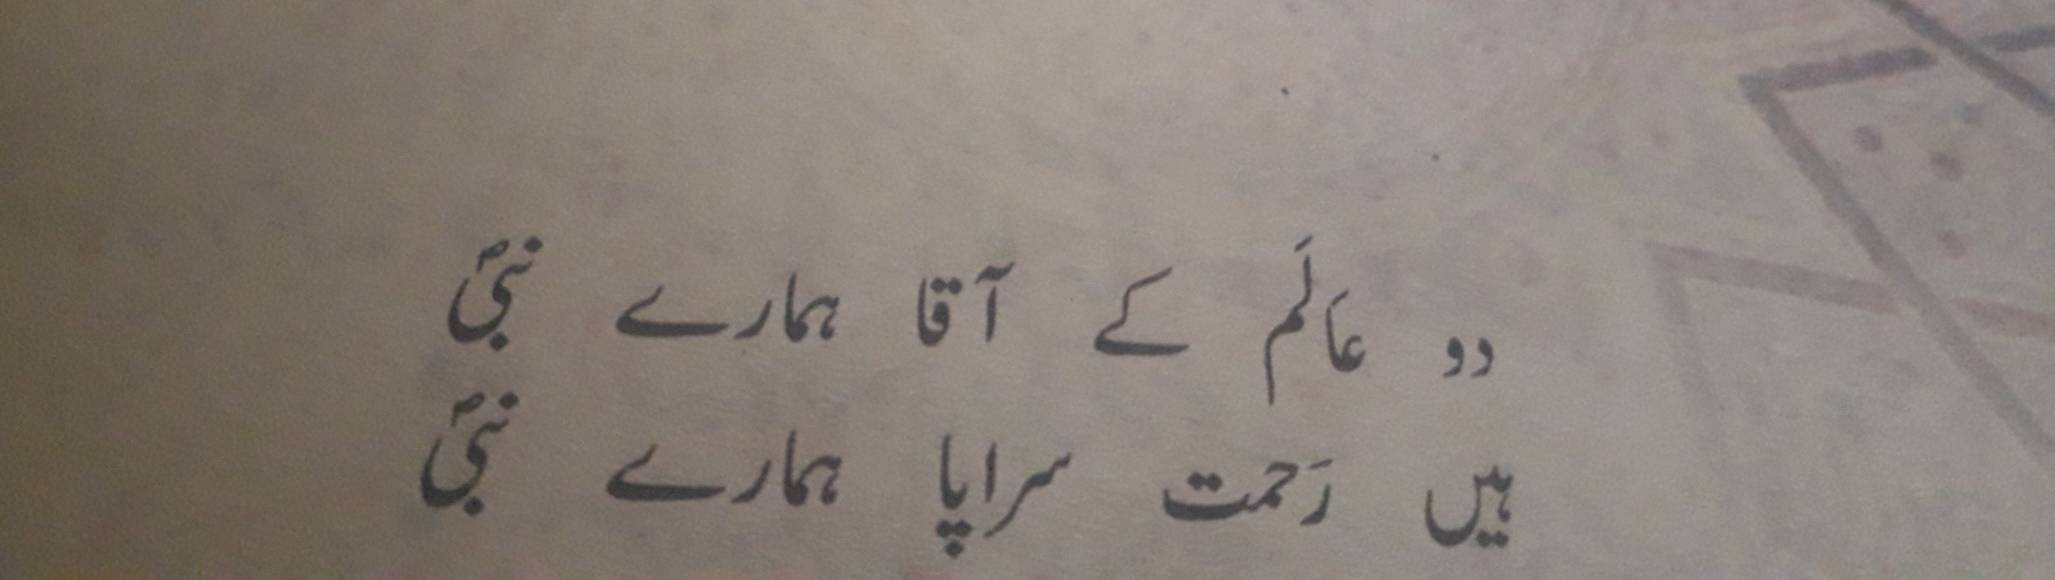 دو عَالَم کے آقا ہمارے نبیؐ
ہیں رَحمت سراپا ہمارے نبیؐ